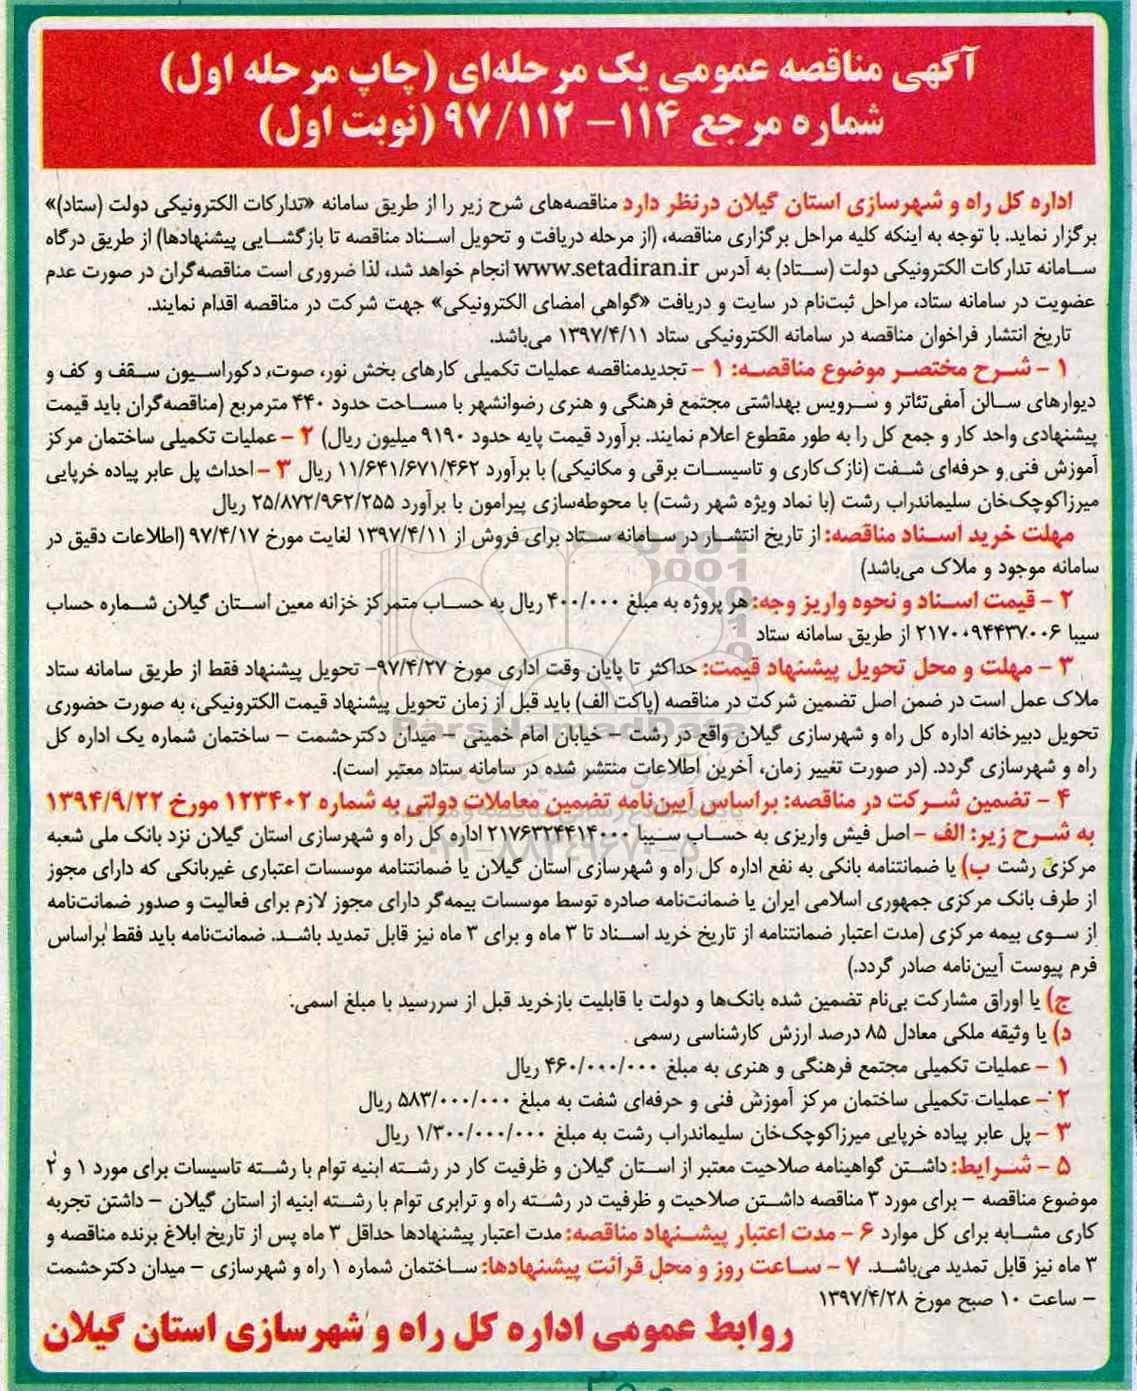 آگهی مناقصه عمومی یک مرحله‌ای (چاپ مرحله اول)
شماره مرجع ۱۱۴- ۹۷/۱۱۲ (نوبت اول)
اداره کل راه و شهرسازی استان گیلان درنظر دارد مناقصه‌های شرح زیر را از طریق سامانه «تدارکات الکترونیکی دولت (ستاد)»
برگزار نماید. با توجه به اینکه کلیه مراحل برگزاری مناقصه، (از مرحله دریافت و تحویل اسناد مناقصه تا بازگشایی پیشنهادها) از طریق درگاه
سامانه تدارکات الکترونیکی دولت (ستاد) به آدرس www.setadiran.ir انجام خواهد شد، لذا ضروری است مناقصه‌گران در صورت عدم
عضویت در سامانه ستاد، مراحل ثبت‌نام در سایت و دریافت «گواهی امضای الکترونیکی» جهت شرکت در مناقصه اقدام نمایند.
تاریخ انتشار فراخوان مناقصه در سامانه الکترونیکی ستاد ۱۳۹۷/۴/۱۱ می‌باشد.
۱ - شرح مختصر موضوع مناقصه: ۱ - تجدیدمناقصه عملیات تکمیلی کارهای بخش نور، صوت، دکوراسیون سقف و کف و
دیوارهای سالن آمفی‌تئاتر و سرویس بهداشتی مجتمع فرهنگی و هنری رضوانشهر با مساحت حدود ۴۴۰ مترمربع (مناقصه‌گران باید قیمت
پیشنهادی واحد کار و جمع کل را به طور مقطوع اعلام نمایند. برآورد قیمت پایه حدود ۹۱۹۰ میلیون ریال) ۲ - عملیات تکمیلی ساختمان مرکز
آموزش فنی و حرفه‌ای شفت (نازک‌کاری و تاسیسات برقی و مکانیکی) با برآورد ۱۱/۶۴۱/۶۷۱/۴۶۲ ریال ۳ - احداث پل عابر پیاده خرپایی
میرزاکوچک‌خان سلیماندراب رشت (با نماد ویژه شهر رشت) با محوطه‌سازی پیرامون با برآورد ۲۵/۸۷۲/۹۶۲/۲۵۵ ریال
مهلت خرید اسناد مناقصه: از تاریخ انتشار در سامانه ستاد برای فروش از ۱۳۹۷/۴/۱۱ لغایت مورخ ۹۷/۴/۱۷ (اطلاعات دقیق در
سامانه موجود و ملاک می‌باشد)
۲ - قیمت اسناد و نحوه واریز وجه: هر پروژه به مبلغ ۴۰۰/۰۰۰ ریال به حساب متمرکز خزانه معین استان گیلان شماره حساب
سیبا ۲۱۷۰۰۹۴۴۳۷۰۰۶ از طریق سامانه ستاد
۳ - مهلت و محل تحویل پیشنهاد قیمت: حداکثر تا پایان وقت اداری مورخ ۹۷/۴/۲۷- تحویل پیشنهاد فقط از طریق سامانه ستاد
ملاک عمل است در ضمن اصل تضمین شرکت در مناقصه (پاکت الف) باید قبل از زمان تحویل پیشنهاد قیمت الکترونیکی، به صورت حضوری
تحویل دبیرخانه اداره کل راه و شهرسازی گیلان واقع در رشت - خیابان امام خمینی - میدان دکترحشمت - ساختمان شماره یک اداره کل
راه و شهرسازی گردد. (در صورت تغییر زمان، آخرین اطلاعات منتشر شده در سامانه ستاد معتبر است).
۴ - تضمین شرکت در مناقصه: براساس آیین‌نامه تضمین معاملات دولتی به شماره ۱۲۳۴۰۲ مورخ ۱۳۹۴/۹/۲۲
به شرح زیر: الف - اصل فیش واریزی به حساب سیبا ۲۱۷۶۳۲۴۴۱۴۰۰۰ اداره کل راه و شهرسازی استان گیلان نزد بانک ملی شعبه
مرکزی رشت ب) یا ضمانتنامه بانکی به نفع اداره کل راه و شهرسازی استان گیلان یا ضمانتنامه موسسات اعتباری غیربانکی که دارای مجوز
از طرف بانک مرکزی جمهوری اسلامی ایران یا ضمانت‌نامه صادره توسط موسسات بیمه‌گر دارای مجوز لازم برای فعالیت و صدور ضمانت‌نامه
از سوی بیمه مرکزی (مدت اعتبار ضمانتنامه از تاریخ خرید اسناد تا ۳ ماه و برای ۳ ماه نیز قابل تمدید باشد. ضمانت‌نامه باید فقط براساس
فرم پیوست آیین‌نامه صادر گردد.)
ج) یا اوراق مشارکت بی‌نام تضمین شده بانک‌ها و دولت با قابلیت بازخرید قبل از سررسید با مبلغ اسمی.
د) یا وثیقه ملکی معادل ۸۵ درصد ارزش کارشناسی رسمی
۱ - عملیات تکمیلی مجتمع فرهنگی و هنری به مبلغ ۴۶۰/۰۰۰/۰۰۰ ریال
۲ - عملیات تکمیلی ساختمان مرکز آموزش فنی و حرفه‌ای شفت به مبلغ ۵۸۳/۰۰۰/۰۰۰ ریال
۳ - پل عابر پیاده خرپایی میرزاکوچک‌خان سلیماندراب رشت به مبلغ ۱/۳۰۰/۰۰۰/۰۰۰ ریال
۵ - شرایط: داشتن گواهینامه صلاحیت معتبر از استان گیلان و ظرفیت کار در رشته ابنیه توام با رشته تاسیسات برای مورد ۱ و ۲
موضوع مناقصه - برای مورد ۳ مناقصه داشتن صلاحیت و ظرفیت در رشته راه و ترابری توام با رشته ابنیه از استان گیلان - داشتن تجربه
کاری مشابه برای کل موارد ۶ - مدت اعتبار پیشنهاد مناقصه: مدت اعتبار پیشنهادها حداقل ۳ ماه پس از تاریخ ابلاغ برنده مناقصه و
۳ ماه نیز قابل تمدید می‌باشد. ۷ - ساعت روز و محل قرائت پیشنهادها: ساختمان شماره ۱ راه و شهرسازی - میدان دکترحشمت
- ساعت ۱۰ صبح مورخ ۱۳۹۷/۴/۲۸
روابط عمومی اداره کل راه و شهرسازی استان گیلان
ParsNamadData